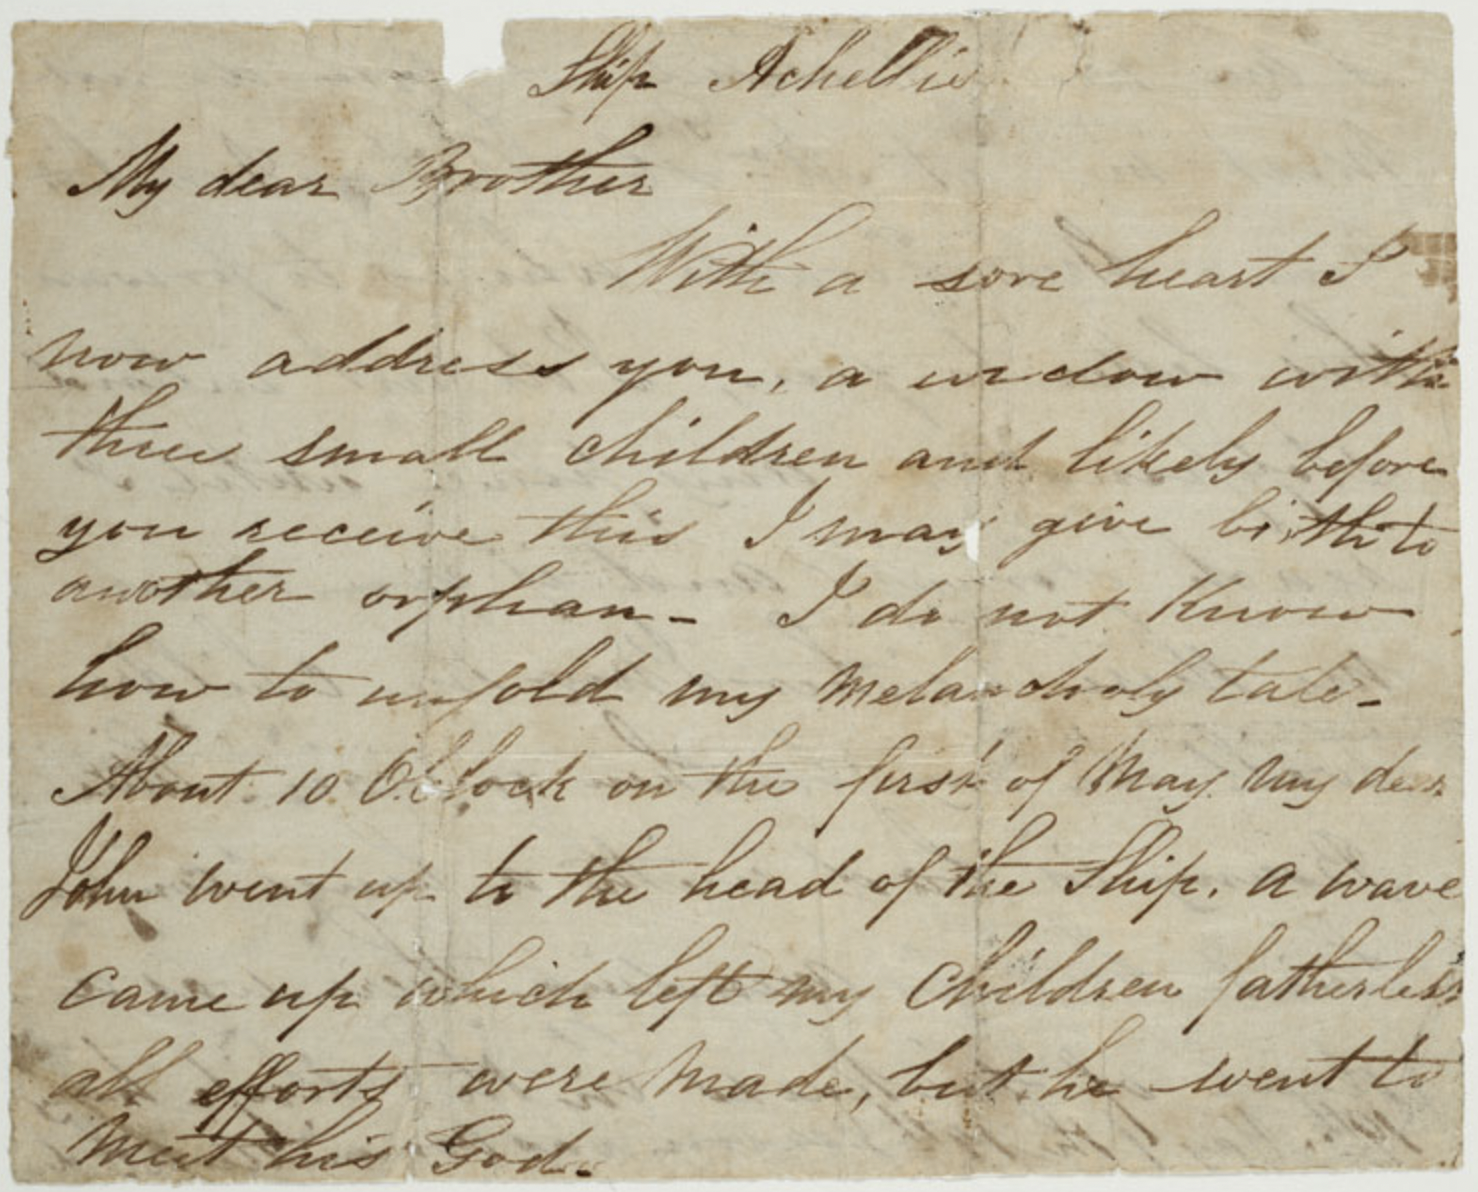 Ship Achellis
My dear Brother
With a sore heart I
now address you, a widow with
three small children and likely before
you receive this I may give birth to
another orphan - I do not Know
how to unfold my Melancholy tale -
About 10 O'Clock on the first of May My dear
John went up to the head of the Ship. a wave
came up which left my Children fatherless
all efforts were Made, but he went to
Meet his God.